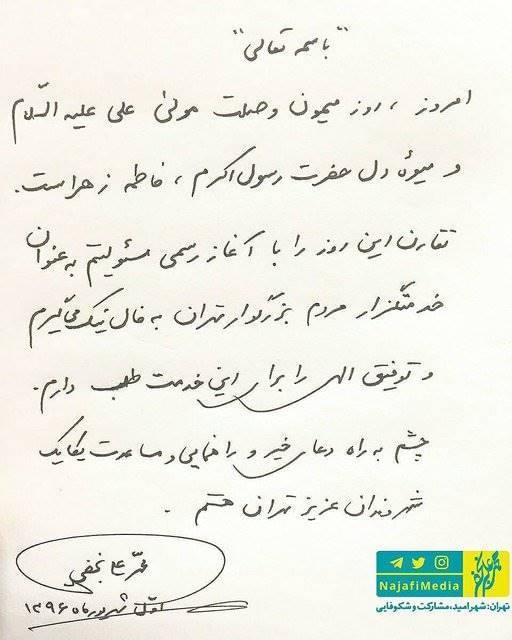 "باسمه تعالی"
امروز، روز میمون وصلت مولیٰ علی علیه السّلام
و میوهٔ دل حضرت رسول اکرم، فاطمه زهراست.
تقارن این روز را با آغاز رسمی مسئولیتم به عنوان
خدمتگزار مردم بزرگوار تهران به فال نیک می‌گیرم
و توفیق الهی را برای این خدمت طلب دارم.
چشم به راه دعای خیر و راهنمایی و مساعدت یکایک
شهروندان عزیز تهران هستم.
محمّد علی نجفی
اوّل شهریور ماه ۱۳۹۶
NajafiMedia
تهران: شهر امید، مشارکت و شکوفایی